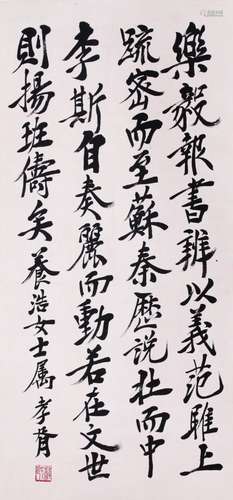 樂毅報書辨以義范雎上
疏密而至蘇秦歷說壯而中
李斯自奏麗而動若在文世
則揚班儔矣 養浩女士属 孝胥